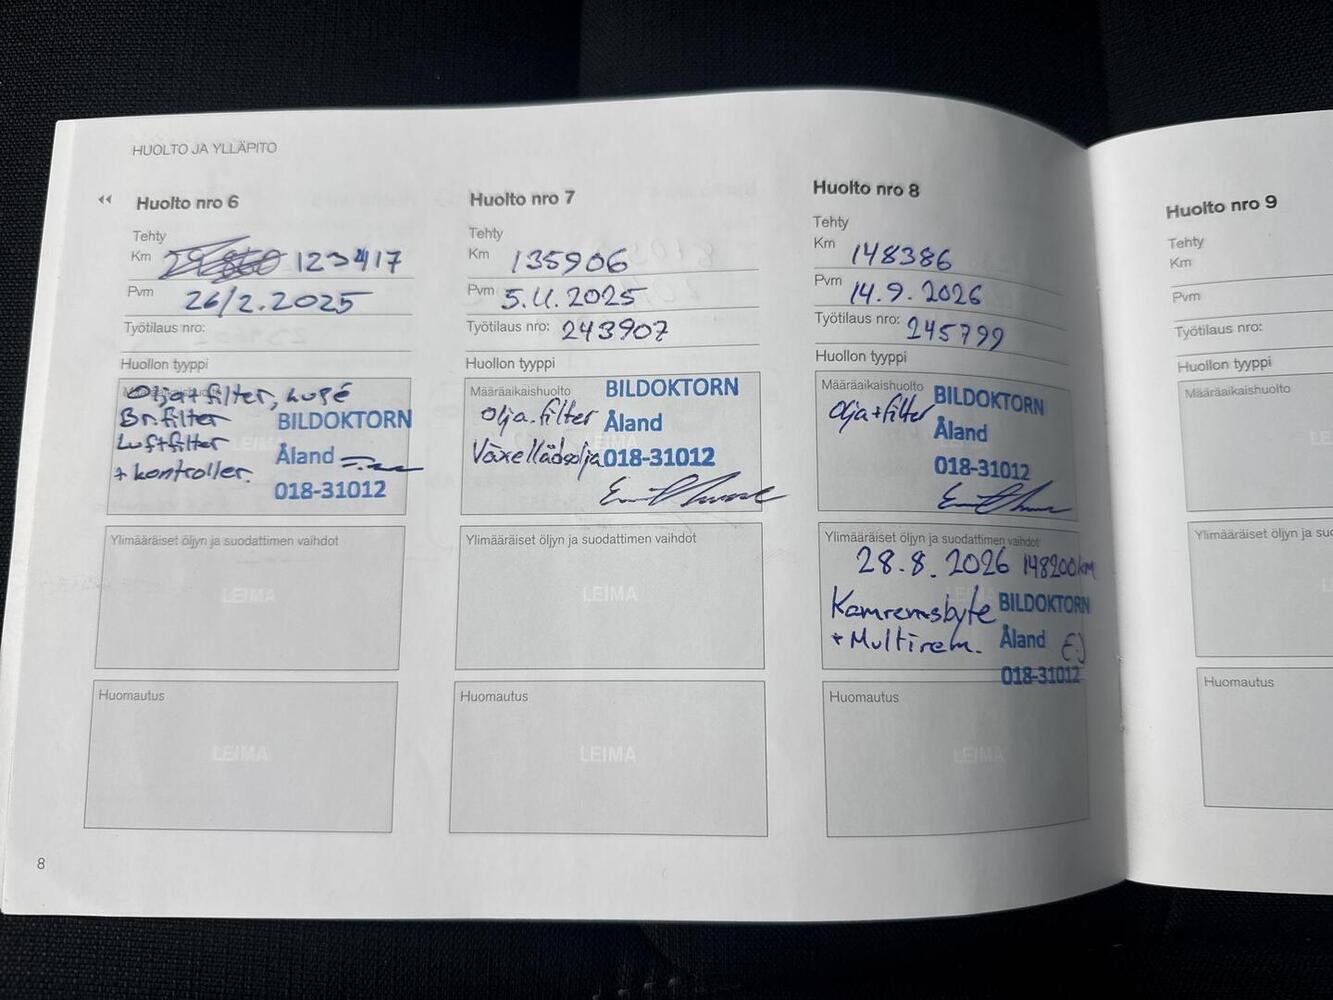 HUOLTO JA YLLÄPITO
Huolto nro 6
Tehty
Km 123417
Pvm 26/2.2025
Työtilaus nro:
Huollon tyyppi
Olja+filter, kupé
Br.filter
Luftfilter
+ kontroller.
BILDOKTORN
Åland
018-31012
Ylimääräiset öljyn ja suodattimen vaihdot
LEIMA
Huomautus
LEIMA
8
Huolto nro 7
Tehty
Km 135906
Pvm 5.11.2025
Työtilaus nro: 243907
Huollon tyyppi
Määräaikaishuolto
Olja.filter
Växellådsolja
BILDOKTORN
Åland
018-31012
Ylimääräiset öljyn ja suodattimen vaihdot
LEIMA
Huomautus
LEIMA
Huolto nro 8
Tehty
Km 148386
Pvm 14.9.2026
Työtilaus nro: 245799
Huollon tyyppi
Määräaikaishuolto
Olja+filter
BILDOKTORN
Åland
018-31012
Ylimääräiset öljyn ja suodattimen vaihdot
28.8.2026 148200km
Kamremsbyte
+ Multirem.
BILDOKTORN
Åland
018-31012
Huomautus
LEIMA
Huolto nro 9
Tehty
Km
Pvm
Työtilaus nro:
Huollon tyyppi
Määräaikaishuolto
Ylimääräiset öljyn ja
Huomautus